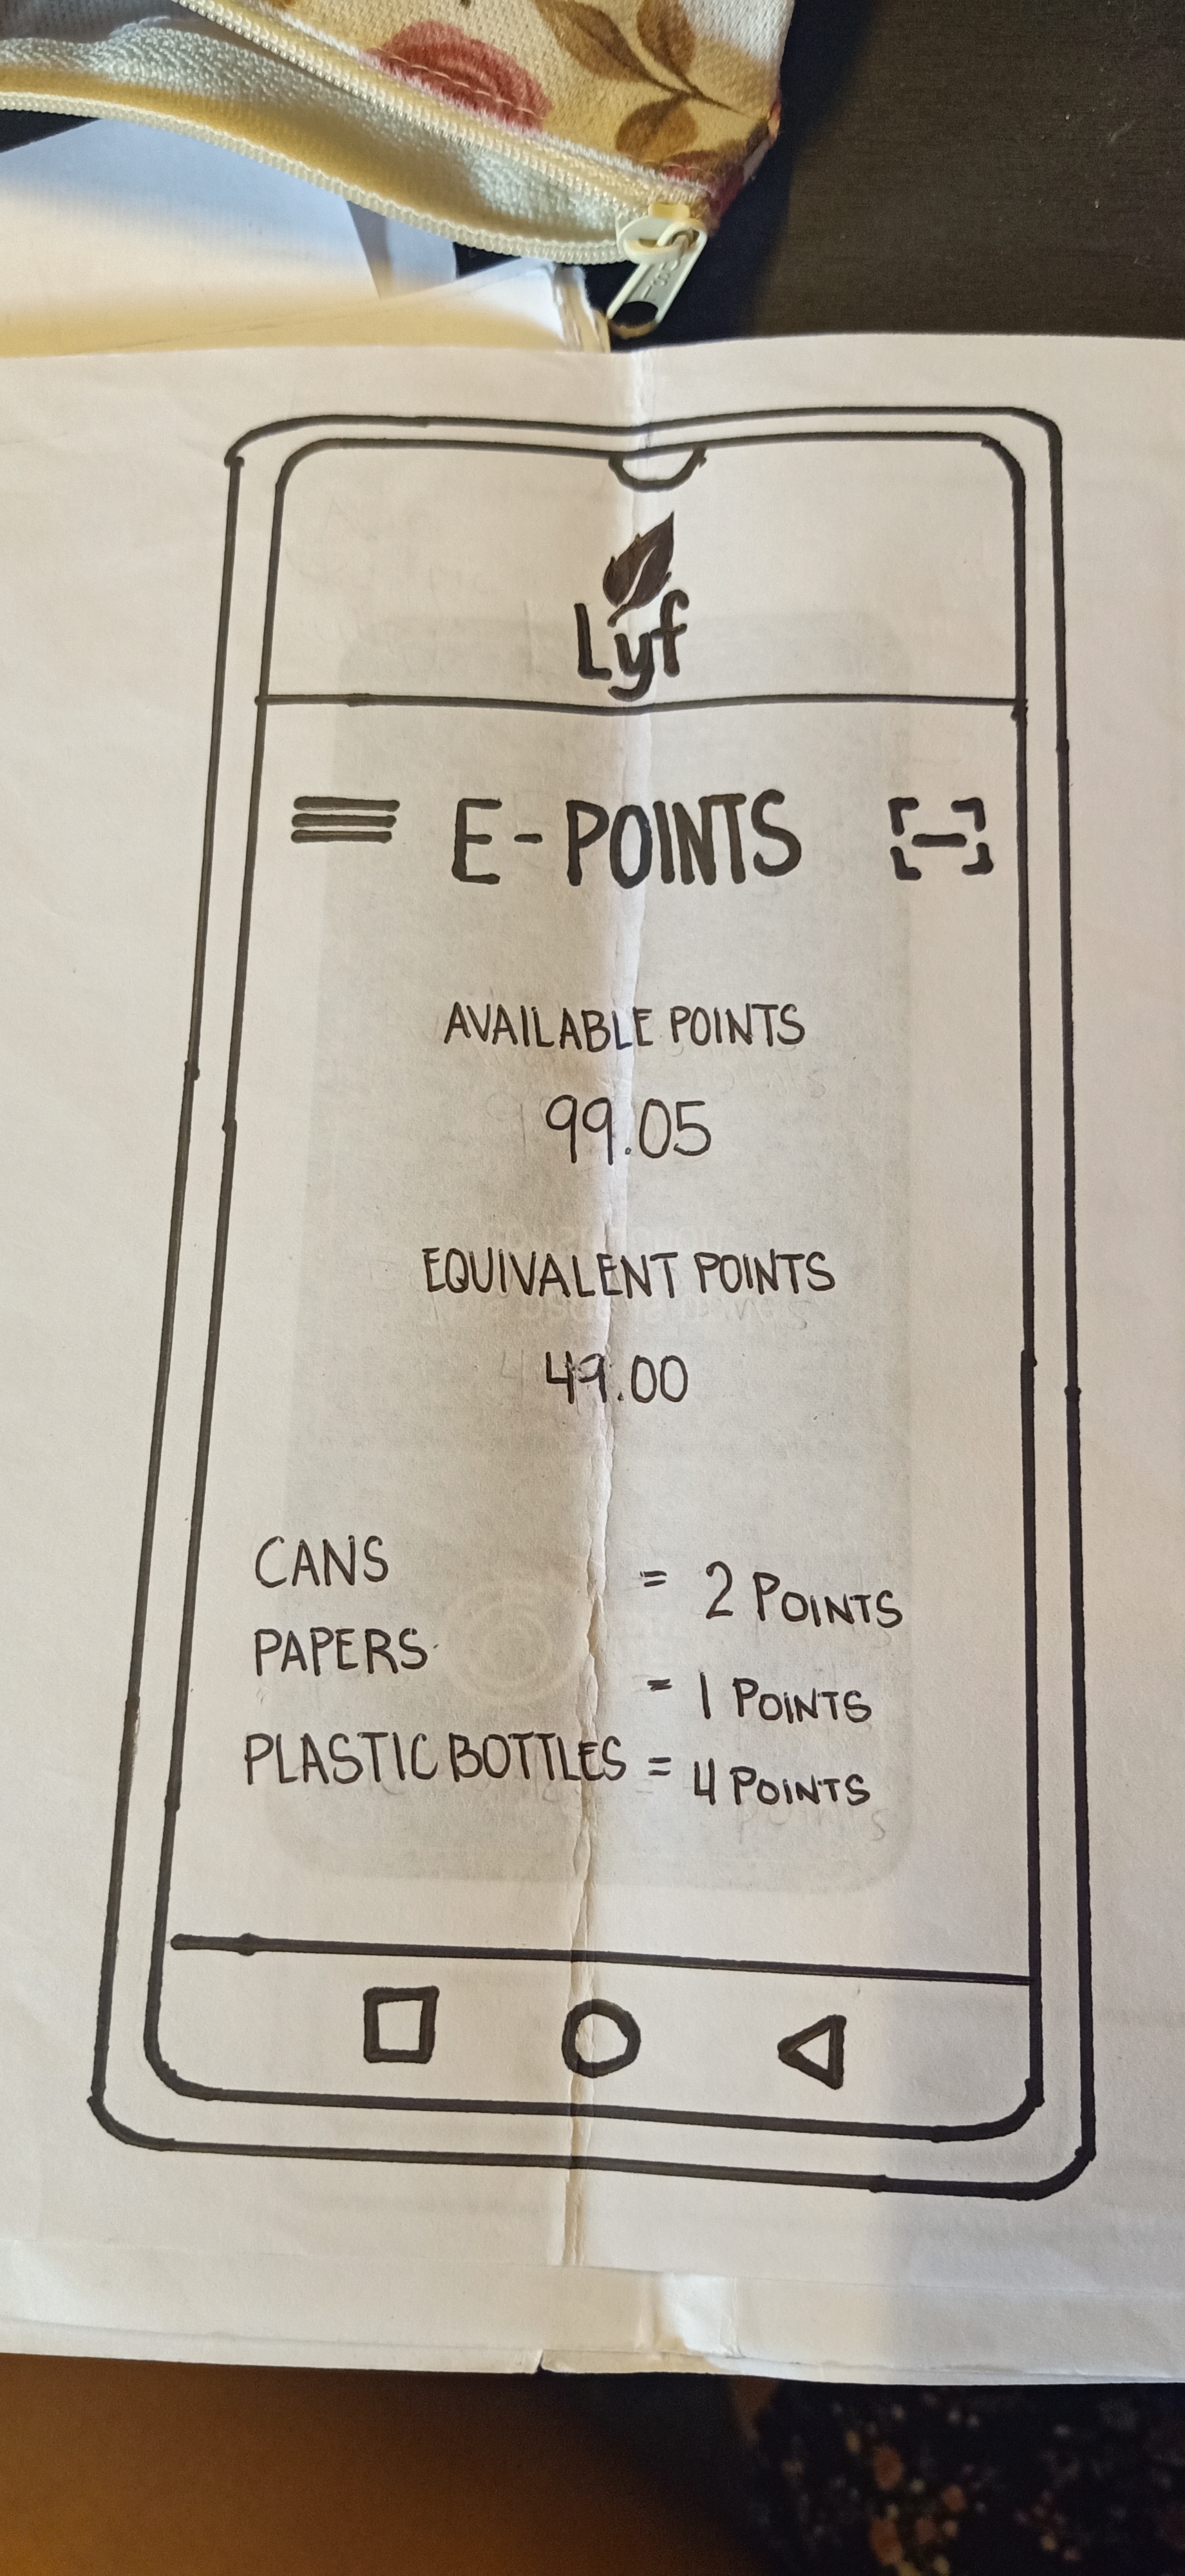 Lyf
E-POINTS
AVAILABLE POINTS
99.05
EQUIVALENT POINTS
49.00
CANS = 2 POINTS
PAPERS = 1 POINTS
PLASTIC BOTTLES = 4 POINTS